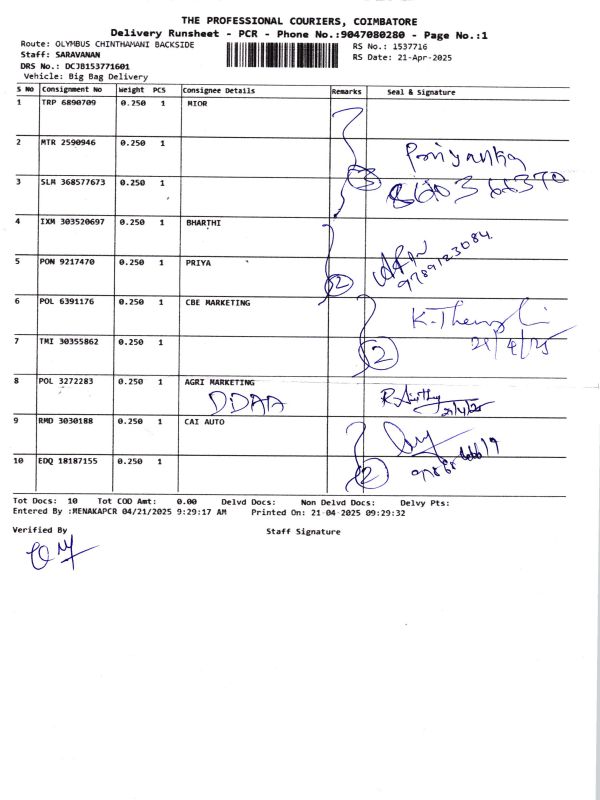 THE PROFESSIONAL COURIERS, COIMBATORE
Delivery Runsheet - PCR - Phone No.:9047080280 - Page No.:1
Route: OLYMBUS CHINTHAMANI BACKSIDE
RS No.: 1537716
Staff: SARAVANAN
RS Date: 21-Apr-2025
DRS No.: DCJB153771601
Vehicle: Big Bag Delivery
S No Consignment No Weight PCS Consignee Details Remarks Seal & Signature
1 TRP 6890709 0.250 1 MIOR
2 MTR 2590946 0.250 1
Priyanka
3 SLM 368577673 0.250 1 3
4 IXM 303520697 0.250 1 BHARTHI
5 PON 9217470 0.250 1 PRIYA
2 9789123084
6 POL 6391176 0.250 1 CBE MARKETING
7 TMI 30355862 0.250 1
2 21/4/25
8 POL 3272283 0.250 1 AGRI MARKETING
DDAA 21/4/25
9 RMD 3030188 0.250 1 CAI AUTO
10 EDQ 18187155 0.250 1 2
Tot Docs: 10 Tot COD Amt: 0.00 Delvd Docs: Non Delvd Docs: Delvy Pts:
Entered By :MENAKAPCR 04/21/2025 9:29:17 AM Printed On: 21-04-2025 09:29:32
Verified By Staff Signature